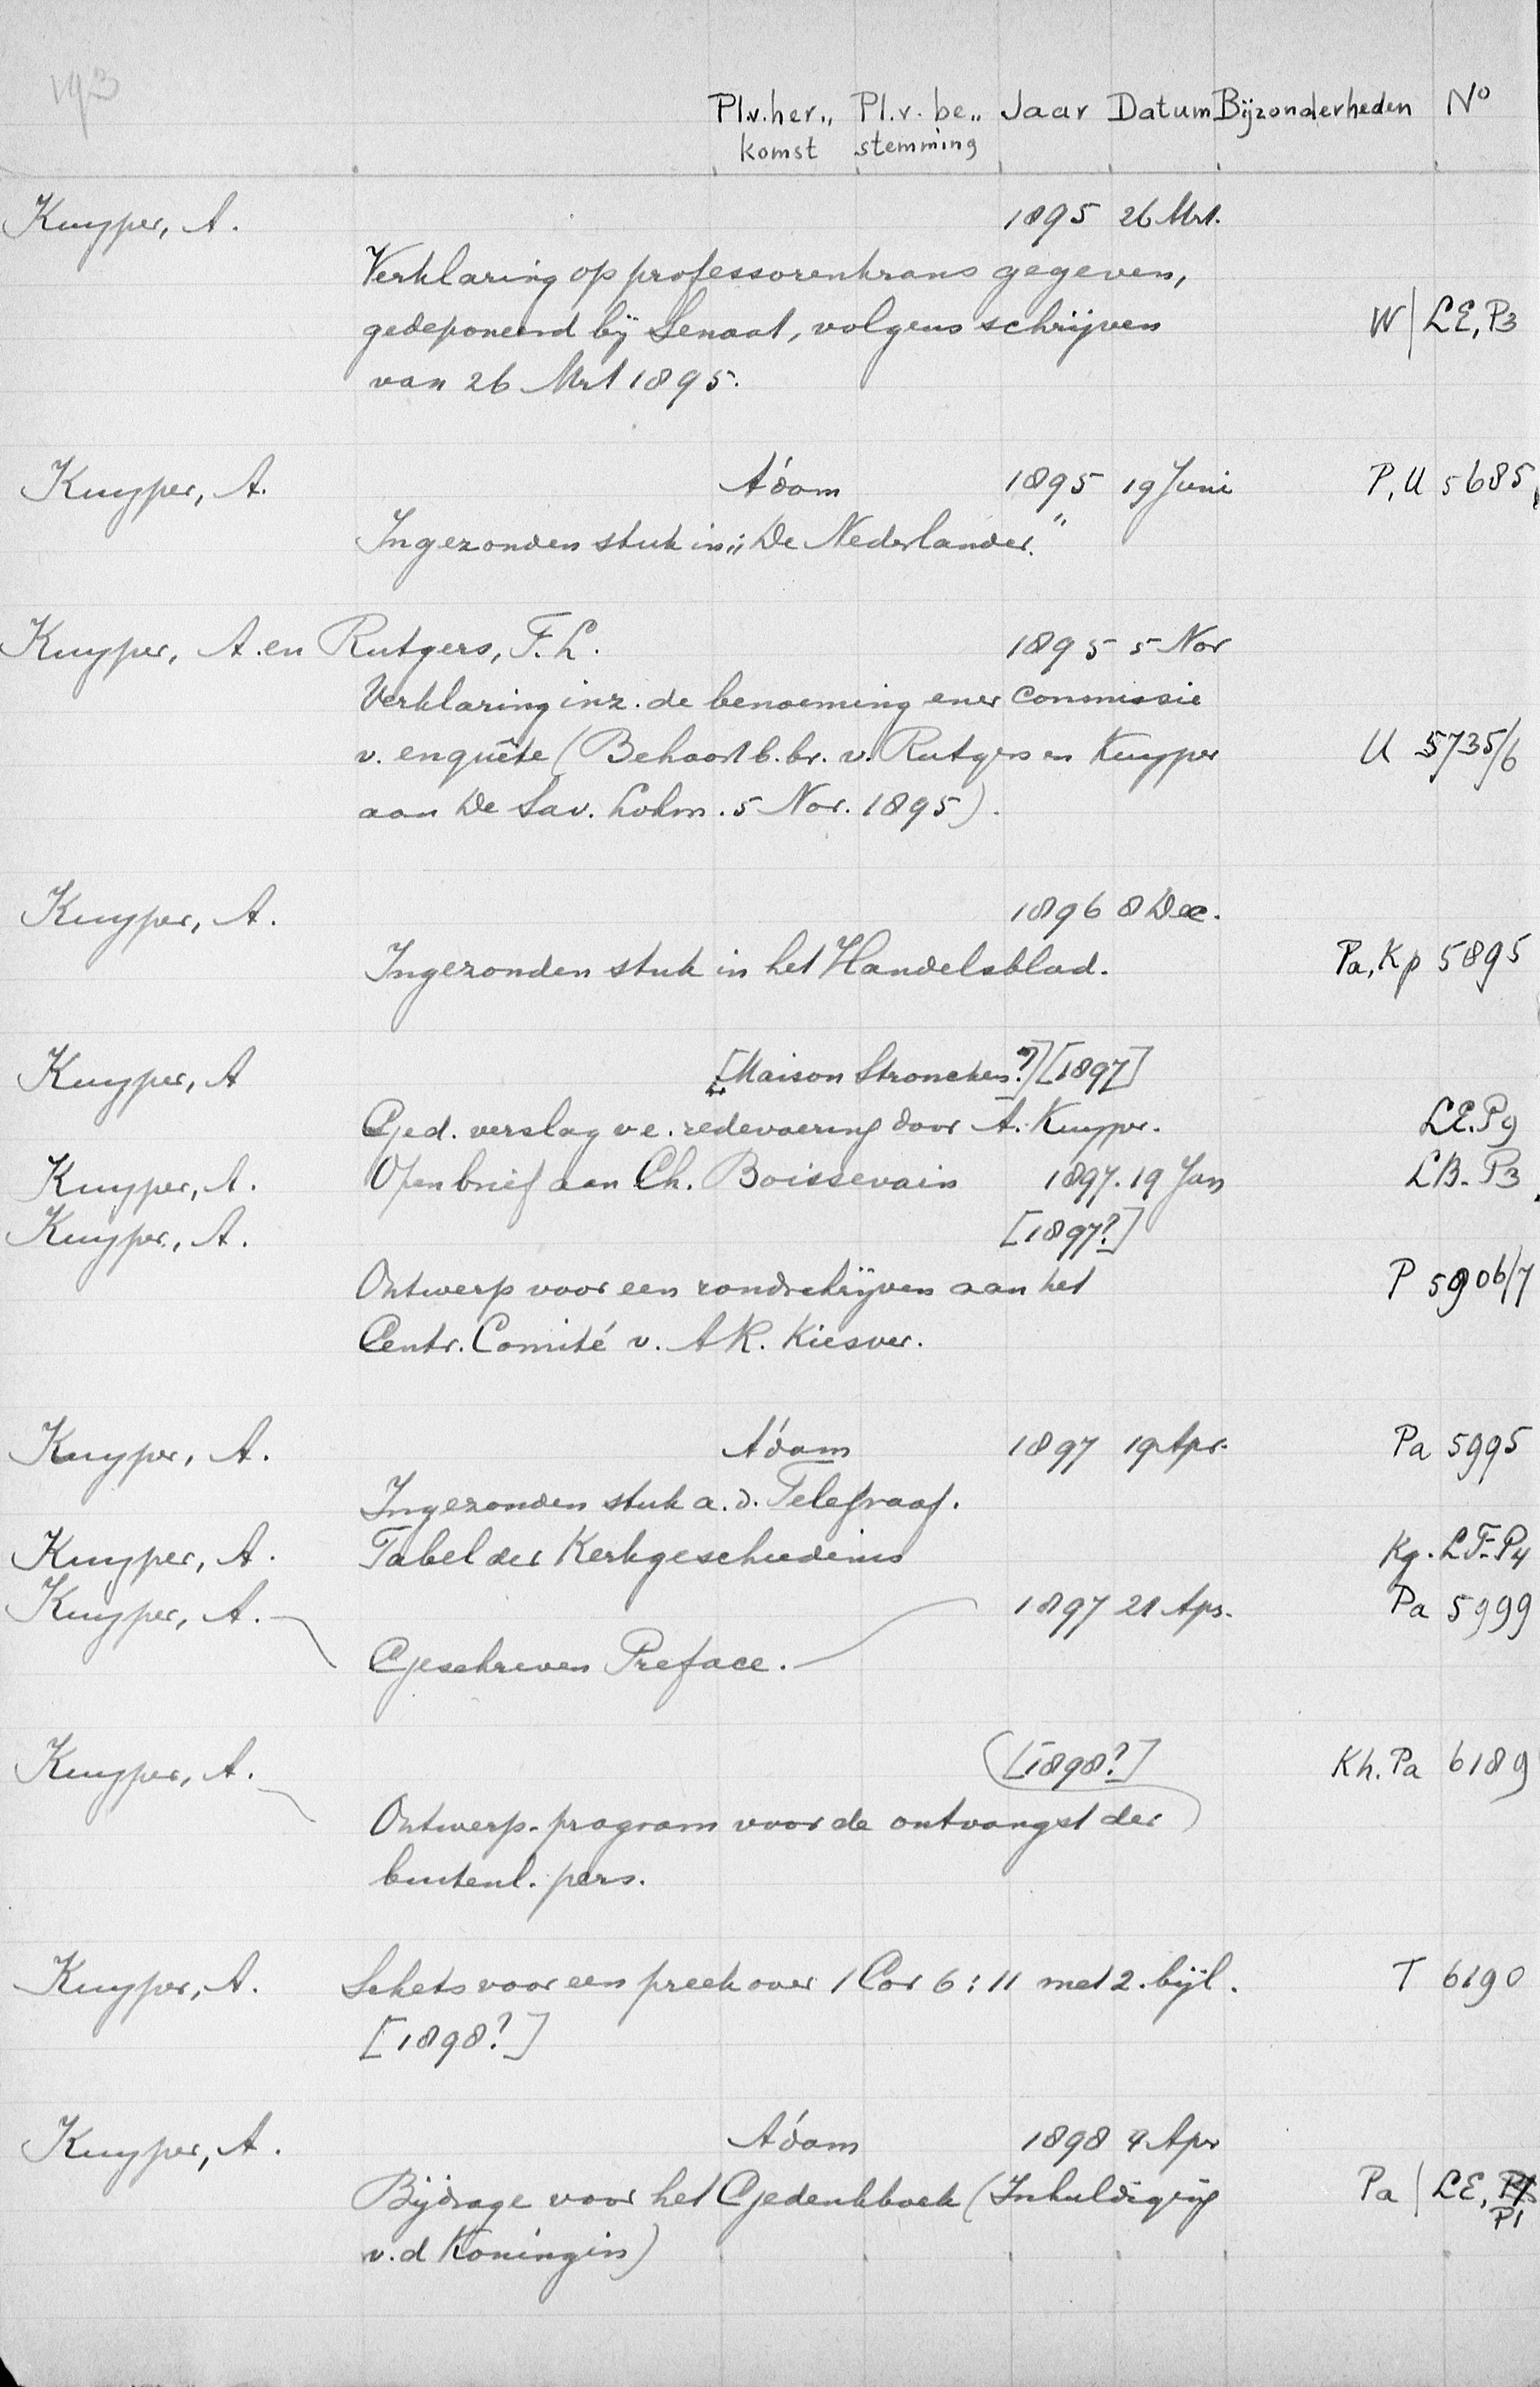 193
Pl.v.her„ Pl.v.be„ Jaar Datum Bijzonderheden No
komst stemming
Kuyper, A. 1895 26 Mrt.
Verklaring op professorenkrans gegeven,
gedeponeerd bij Senaat, volgens schrijven W | LE, P3
van 26 Mrt 1895.
Kuyper, A. A'dam 1895 19 Juni P, U 5685
Ingezonden stuk in „De Nederlander."
Kuyper, A. en Rutgers, F.L. 1895 5 Nov
Verklaring inz. de benoeming ener commissie
v. enquête (Behoort b. br. v. Rutgers en Kuyper U 5735/6
aan De Sav. Lohm. 5 Nov. 1895).
Kuyper, A. 1896 8 Dec.
Ingezonden stuk in het Handelsblad. Pa, Kp 5895
Kuyper, A [Maison Stroucken?] [1897]
Ged. verslag v e. redevoering door A. Kuyper. LE. P9
Kuyper, A. Open brief aan Ch. Boissevain 1897. 19 Jan LB. P3
Kuyper, A. [1897?]
Ontwerp voor een rondschrijven aan het P 5906/7
Centr. Comité v. AR. Kiesver.
Kuyper, A. A'dam 1897 19 Apr. Pa 5995
Ingezonden stuk a. d. Telegraaf.
Kuyper, A. Tabel der Kerkgeschiedenis Kg. LF. P4
Kuyper, A. 1897 21 Apr. Pa 5999
Geschreven Preface.
Kuyper, A. [1898?] Kh. Pa 6189
Ontwerp-program voor de ontvangst der
buitenl. pers.
Kuyper, A. Schets voor een preek over 1 Cor 6:11 met 2. bijl. T 6190
[1898?]
Kuyper, A. A'dam 1898 9 Apr
Bijdrage voor het Gedenkboek (Inhuldiging Pa | LE, P1
v. d Koningin)